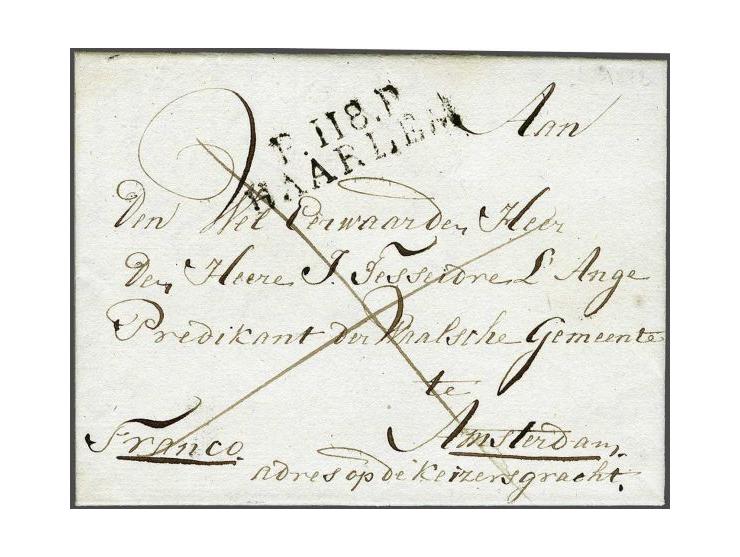 P.118.P
HAARLEM
Aan
Den Wel Eerwaarden Heer
Den Heere J. Tesseidre L'Ange
Predikant der Waalsche Gemeente
te
Franco. Amsterdam.
adres op de Keizersgracht.